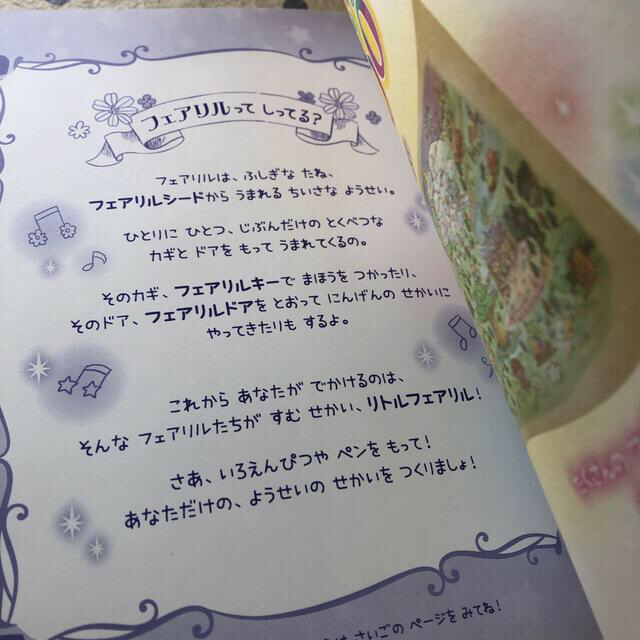 フェアリルって しってる?
フェアリルは、ふしぎな たね、
フェアリルシードから うまれる ちいさな ようせい。
ひとりに ひとつ、じぶんだけの とくべつな
カギと ドアを もって うまれてくるの。
そのカギ、フェアリルキーで まほうを つかったり、
そのドア、フェアリルドアを とおって にんげんの せかいに
やってきたりも するよ。
これから あなたが でかけるのは、
そんな フェアリルたちが すむ せかい、リトルフェアリル!
さあ、いろえんぴつや ペンを もって!
あなただけの、ようせいの せかいを つくりましょ!
は さいごの ページを みてね!